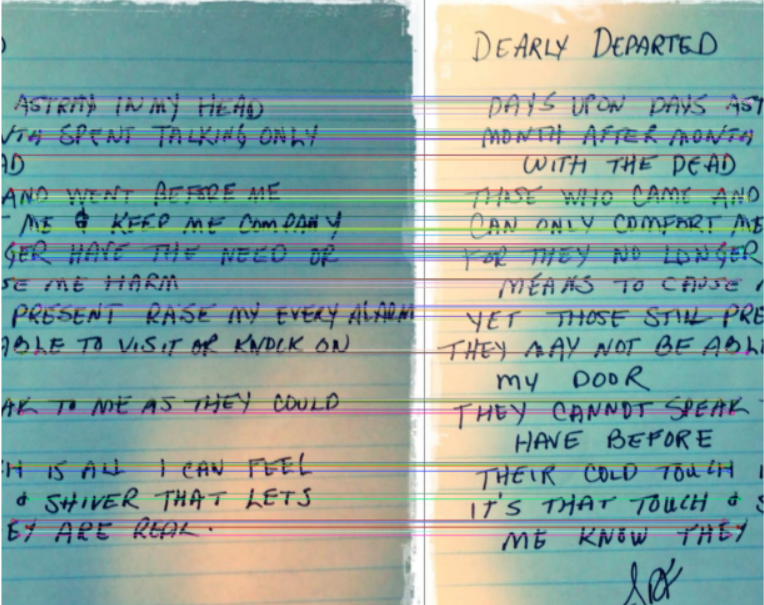 ASTRAY IN MY HEAD
NTH SPENT TALKING ONLY
AD
AND WENT BEFORE ME
ME & KEEP ME COMPANY
GER HAVE THE NEED OR
SE ME HARM
PRESENT RAISE MY EVERY ALARM
ABLE TO VISIT OR KNOCK ON
AK TO ME AS THEY COULD
H IS ALL I CAN FEEL
& SHIVER THAT LETS
EY ARE REAL.
DEARLY DEPARTED
DAYS UPON DAYS AST
MONTH AFTER MONTH
WITH THE DEAD
THOSE WHO CAME AND
CAN ONLY COMFORT ME
FOR THEY NO LONGER
MEANS TO CAUSE
YET THOSE STILL PRE
THEY MAY NOT BE ABL
MY DOOR
THEY CANNOT SPEAK
HAVE BEFORE
THEIR COLD TOUCH
IT'S THAT TOUCH & S
ME KNOW THEY